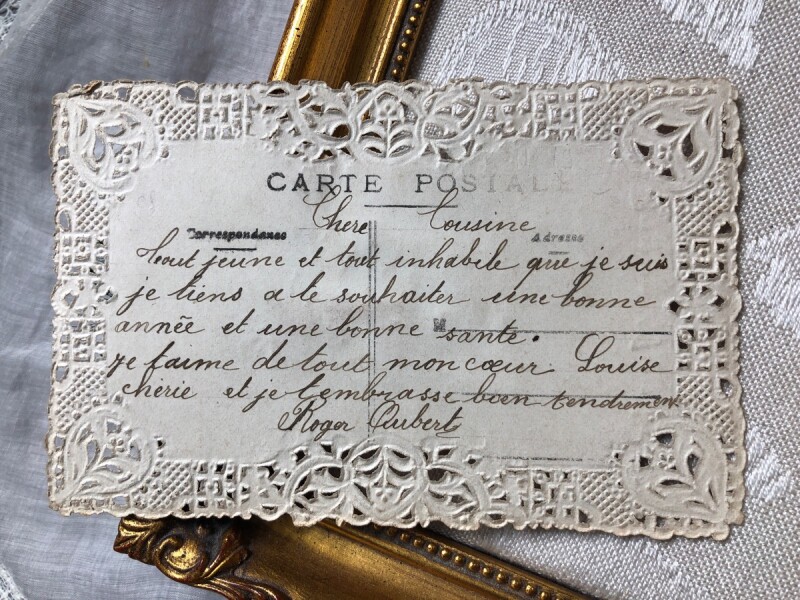 CARTE POSTALE
Chere Cousine
Correspondance
Adresse
Tout jeune et tout inhabile que je suis
je tiens a te souhaiter une bonne
année et une bonne santé.
M
je t'aime de tout mon cœur Louise
chérie et je t'embrasse bien tendrement
Roger Aubert